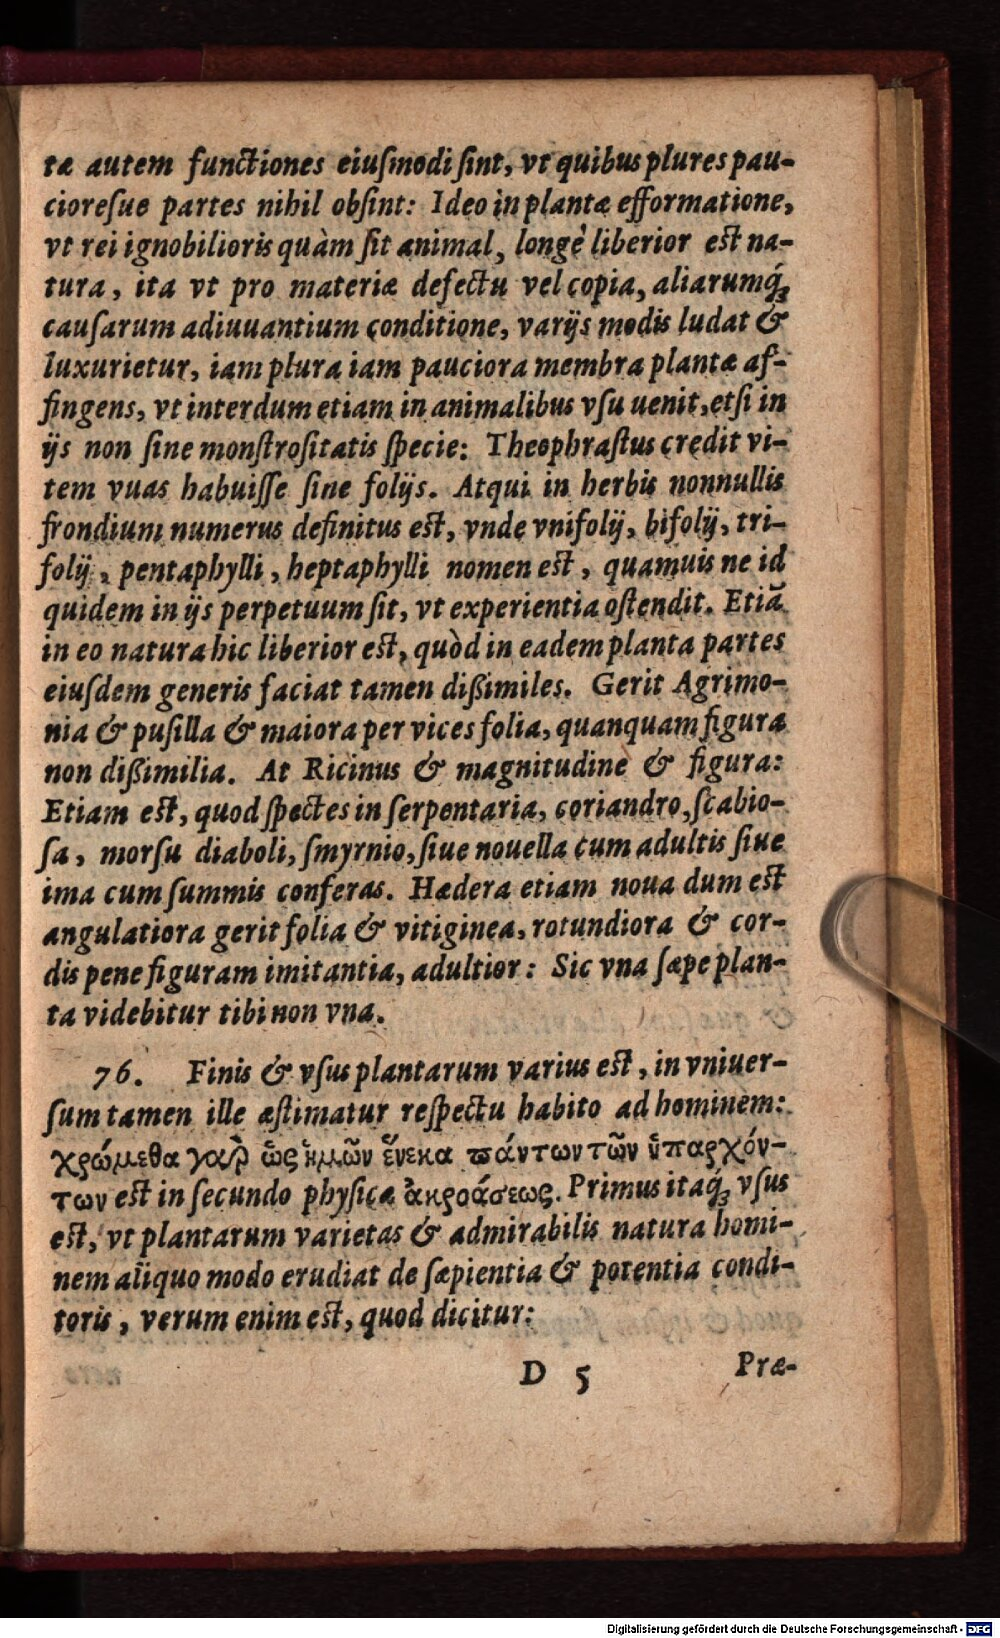 tæ autem functiones eiuſmodi ſint, vt quibus plures pau-
cioreſue partes nihil obſint: Ideo in plantæ efformatione,
vt rei ignobilioris quàm ſit animal, longè liberior eſt na-
tura, ita vt pro materiæ defectu vel copia, aliarumq́;
cauſarum adiuuantium conditione, varijs modis ludat &
luxurietur, iam plura iam pauciora membra plantæ af-
fingens, vt interdum etiam in animalibus vſu uenit, etſi in
ijs non ſine monſtroſitatis ſpecie: Theophraſtus credit vi-
tem vuas habuiſſe ſine folijs. Atqui in herbis nonnullis
frondium numerus definitus eſt, vnde vnifolij, bifolij, tri-
folij, pentaphylli, heptaphylli nomen eſt, quamuis ne id
quidem in ijs perpetuum ſit, vt experientia oſtendit. Etiã
in eo natura hic liberior eſt, quòd in eadem planta partes
eiuſdem generis faciat tamen dißimiles. Gerit Agrimo-
nia & puſilla & maiora per vices folia, quanquam figura
non dißimilia. At Ricinus & magnitudine & figura:
Etiam eſt, quod ſpectes in ſerpentaria, coriandro, ſcabio-
ſa, morſu diaboli, ſmyrnio, ſiue nouella cum adultis ſiue
ima cum ſummis conferas. Hædera etiam noua dum eſt
angulatiora gerit folia & vitiginea, rotundiora & cor-
dis pene figuram imitantia, adultior: Sic vna ſæpe plan-
ta videbitur tibi non vna.
76. Finis & vſus plantarum varius eſt, in vniuer-
ſum tamen ille æſtimatur reſpectu habito ad hominem:
χρώμεθα γαρ̀ ὥς ἡμῶν ἕνεκα πάντων τῶν ὑπαρχόν-
των eſt in ſecundo phyſicæ ἀκροάσεως. Primus itaq́; vſus
eſt, vt plantarum varietas & admirabilis natura homi-
nem aliquo modo erudiat de ſæpientia & potentia condi-
toris, verum enim eſt, quod dicitur:
D 5 Præ-
Digitalisierung gefördert durch die Deutsche Forschungsgemeinschaft - DFG